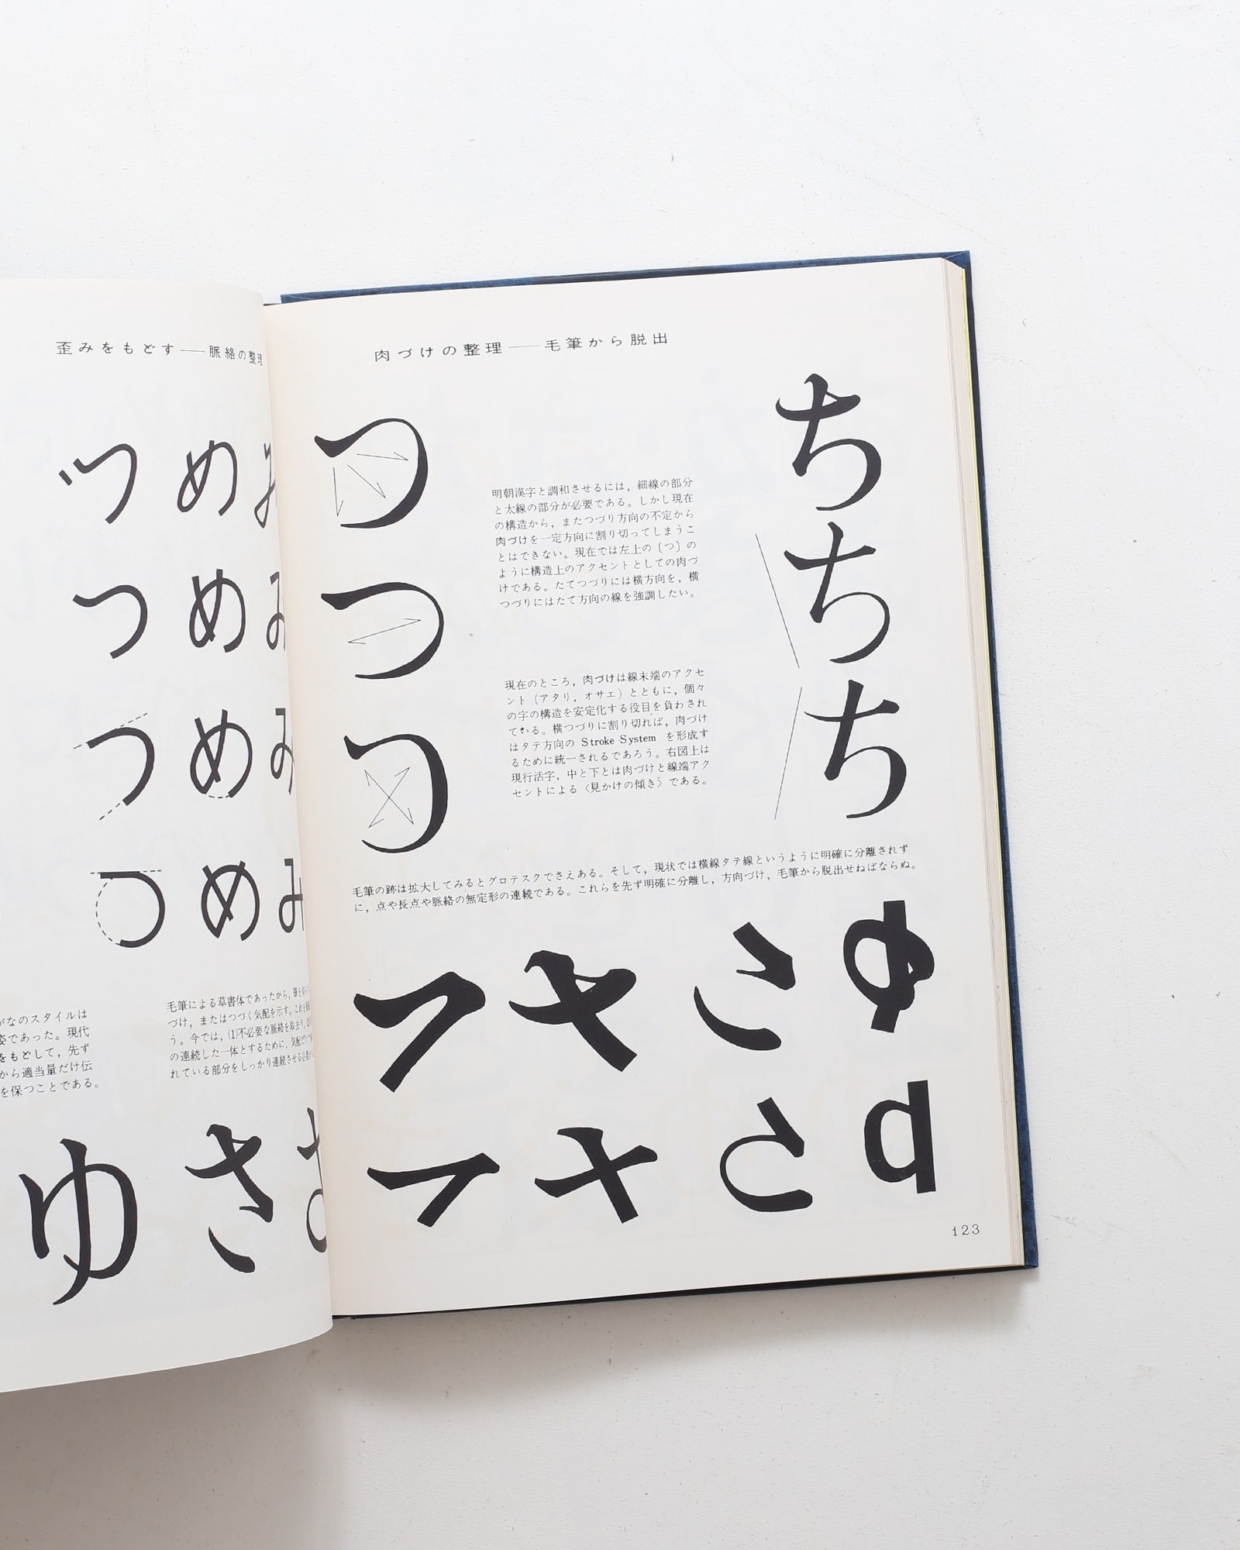 歪みをもどす——脈絡の整理
ツ め
つ め
つ め
つ め
がなのスタイルは
姿であった。現代
をもどして，先ず
から適当量だけ伝
を保つことである。
毛筆による草書体であったから，筆を
づけ，またはつづく気配を示す。これを
う。今では，⑴不必要な脈絡を取去り，
の連続した一体とするために，
れている部分をしっかり連続させる必要が
ゆ さ
肉づけの整理——毛筆から脱出
つ
つ
つ
明朝漢字と調和させるには，細線の部分
と太線の部分が必要である。しかし現在
の構造から，またつづり方向の不定から
肉づけを一定方向に割り切ってしまうこ
とはできない。現在では左上の〔つ〕の
ように構造上のアクセントとしての肉づ
けである。たてつづりには横方向を，横
つづりにはたて方向の線を強調したい。
現在のところ，肉づけは線末端のアクセ
ント（アタリ，オサエ）とともに，個々
の字の構造を安定化する役目を負わされ
ている。横つづりに割り切れば，肉づけ
はタテ方向の Stroke System を形成す
るために統一されるであろう。右図上は
現行活字，中と下とは肉づけと線端アク
セントによる〈見かけの傾き〉である。
ち
ち
ち
毛筆の跡は拡大してみるとグロテスクでさえある。そして，現状では横線タテ線というように明確に分離されず
に，点や長点や脈絡の無定形の連続である。これらを先ず明確に分離し，方向づけ，毛筆から脱出せねばならぬ。
123